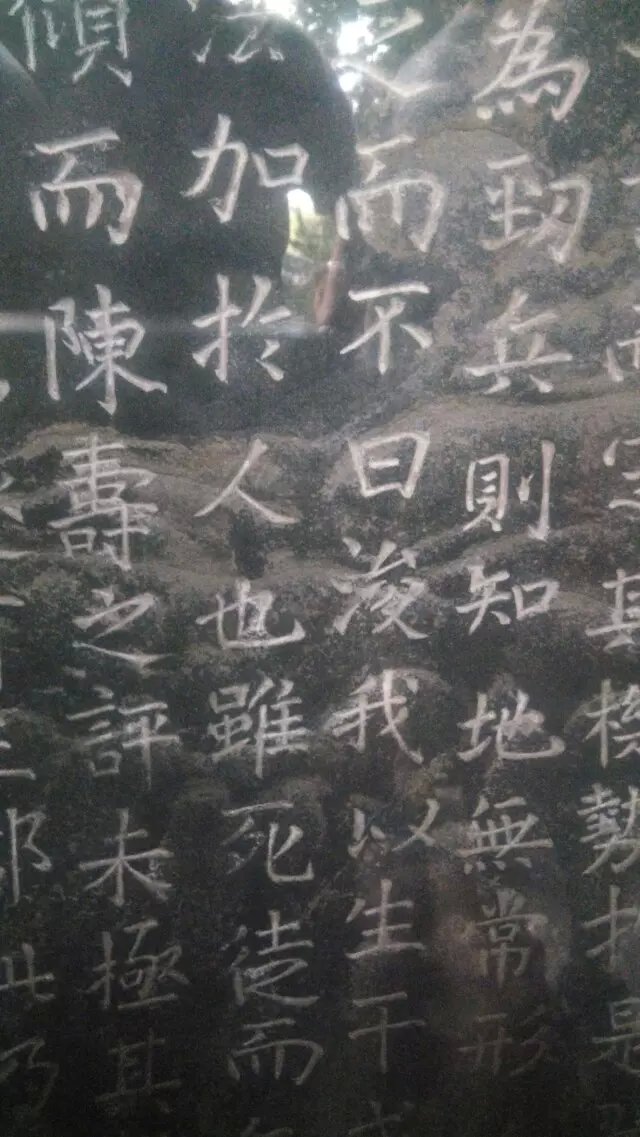 其勢
為勁兵則知地無常形
之而不曰浚我以生干
法加扵人也雖死徙而
傾而陳壽之評未極其